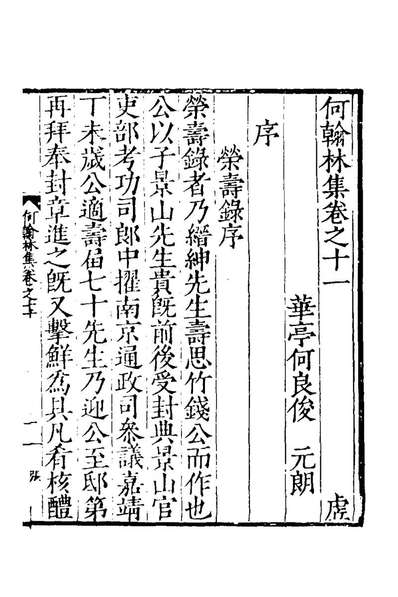 何翰林集卷之十一
虎
華亭何良俊　元朗
序
榮壽錄序
榮壽錄者乃縉紳先生壽思竹錢公而作也
公以子景山先生貴旣前後受封典景山官
吏部考功司郎中擢南京通政司叅議嘉靖
丁未歲公適壽届七十先生乃迎公至邸第
再拜奉封章進之旣又擊鮮爲具凡肴核醴
何翰林集卷之十
一
張